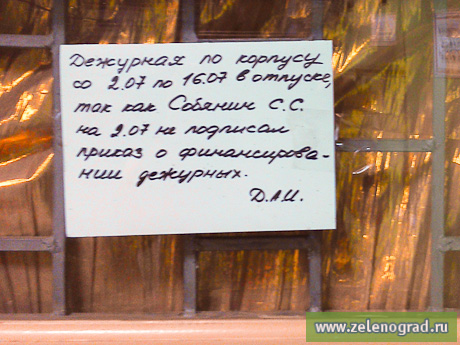 Дежурная по корпусу
со 2.07 по 16.07 в отпуске,
так как Собянин С.С.
на 2.07 не подписал
приказ о финансирова-
нии дежурных.
Д.А.И.
www.zelenograd.ru